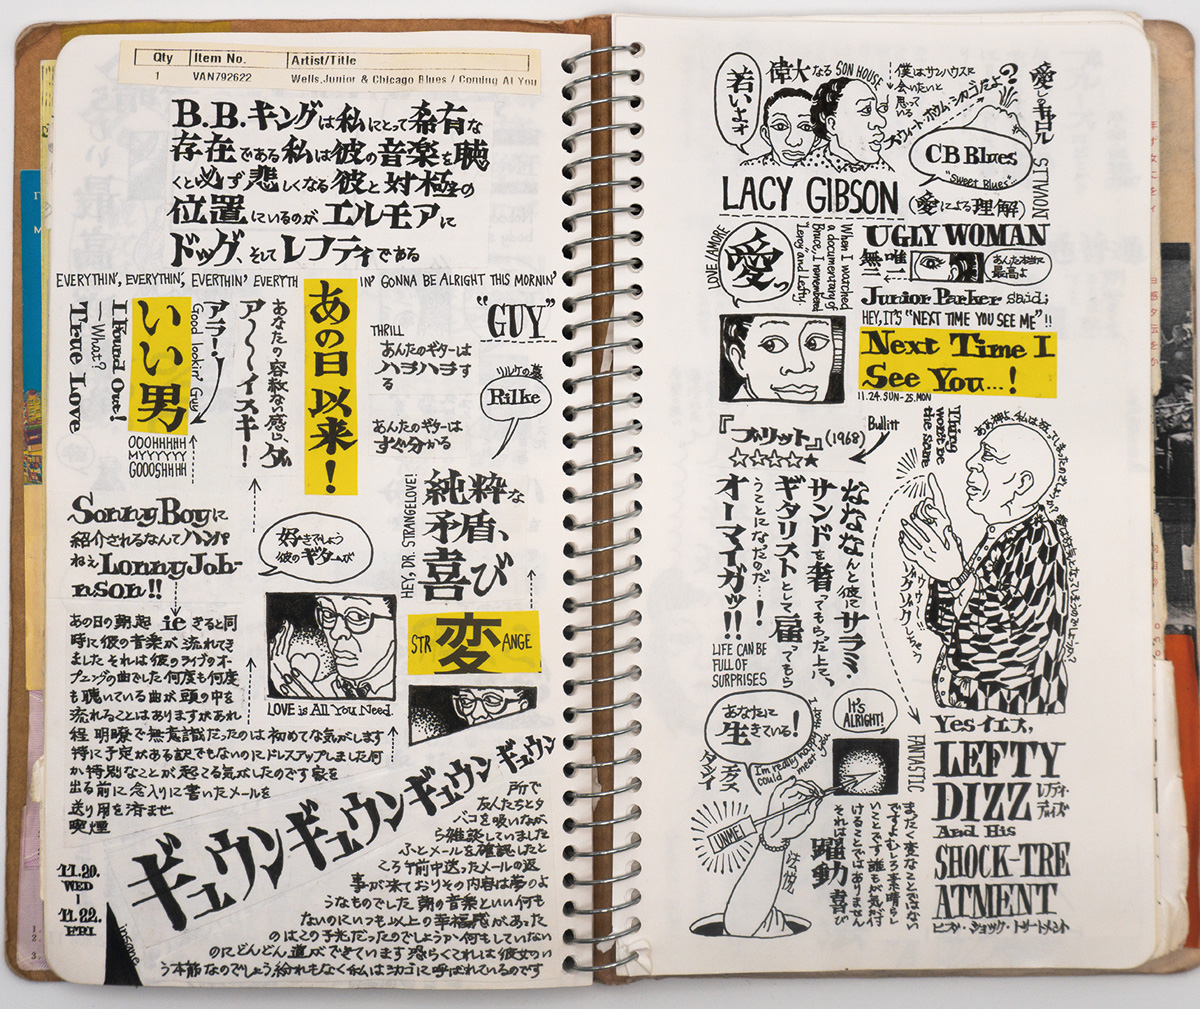 Qty Item No. Artist/Title
1 VAN792622 Wells,Junior & Chicago Blues / Coming At You
B.B.キングは私にとって希有な
存在である私は彼の音楽を聴
くと必ず悲しくなる彼と対極の
位置にいるのがエルモアに
ドッグ、そしてレフティである
EVERYTHIN', EVERYTHIN', EVERTHIN' EVERYTH IN' GONNA BE ALRIGHT THIS MORNIN'
あの日以来!
あなたの容赦ない感じ、ダ
ア〜〜イスキ!
アラ!
Good lookin' Guy
いい男
OOOHHHHH
MYYYYYY
GOOOSHHHH
I Found Out!
— What?
True Love
"GUY"
THRILL
あんたのギターは
ハラハラす
る
リルケの墓
Rilke
あんたのギターは
すぐ分かる
純粋な
矛盾、
喜び
HEY, DR. STRANGELOVE!
STR 変 ANGE
Sonny Boyに
紹介されるなんてハンパ
ねえLonny Joh-
nson!!
好きでしょう
彼のギターが
LOVE is All You Need.
あの日の朝起 ie きると同
時に彼の音楽が流れてき
ました それは彼のライブのオー
プニングの曲でした 何度も何度
も聴いている曲が頭の中を
流れることはありますがあれ
程 明瞭で無意識だったのは初めてな気がします
特に予定がある訳でもないのにドレスアップしました何
か特別なことが起こる気がしたのです 家を
出る前に念入りに書いたメールを
送り用を済ませ
喫煙
ギュウンギュウンギュウンギュウン
所で
友人たちとタ
バコを吸いなが
ら雑談していました
ふとメールを確認したと
ころ午前中送ったメールの返
事が来ておりその内容は夢のよ
うなものでした 朝の音楽といい何も
ないのにいつも以上の幸福感があった
のはこの予兆だったのでしょうか 何もしていない
のにどんどん道ができています 恐らくこれは彼女のい
う本筋なのでしょう 紛れもなく私はシカゴに呼ばれているのです
11.20.
WED
11.22.
FRI
Insane
若いよォ
偉大なる SON HOUSE
僕はサンハウスに
会いたいと
思っている
スウィート ホウム・シカゴだよ?
愛しのキャロル
CB Blues
"Sweet Blues"..
NOVALIS
LACY GIBSON (愛による理解)
LOVE/AMORE
愛っ
When I watched
a documentary of
Bruce, I remembered
"Leroy" and Lefty.
UGLY WOMAN
唯一
無二
あんた本当に
最高よ
Junior Parker said;
HEY, IT'S "NEXT TIME YOU SEE ME"!!
Next Time I
See You...!
11.24.SUN-25.MON
『ブリット』(1968)
Bullitt
☆☆☆☆★
Thing
worst be
the same
なななんと彼にサラミ・
サンドを奢ってもらった上に、
ギタリストとして雇ってもら
うことになったのだ…!
オーマイガッ!!
LIFE CAN BE
FULL OF
SURPRISES
あなたに
生きている!
It's
ALRIGHT!
I'm really happy
that I
could meet you
UNMEI
法悦
躍動
喜び
まったく変なことではない
ですよむしろ素晴らし
いことです 誰もが気付
けることではありません
それは
FANTASTIC
Yes イエス,
LEFTY
DIZZ レフティ・ディズ
And His
SHOCK-TRE
ATMENT
ヒズ・ショック・トリートメント